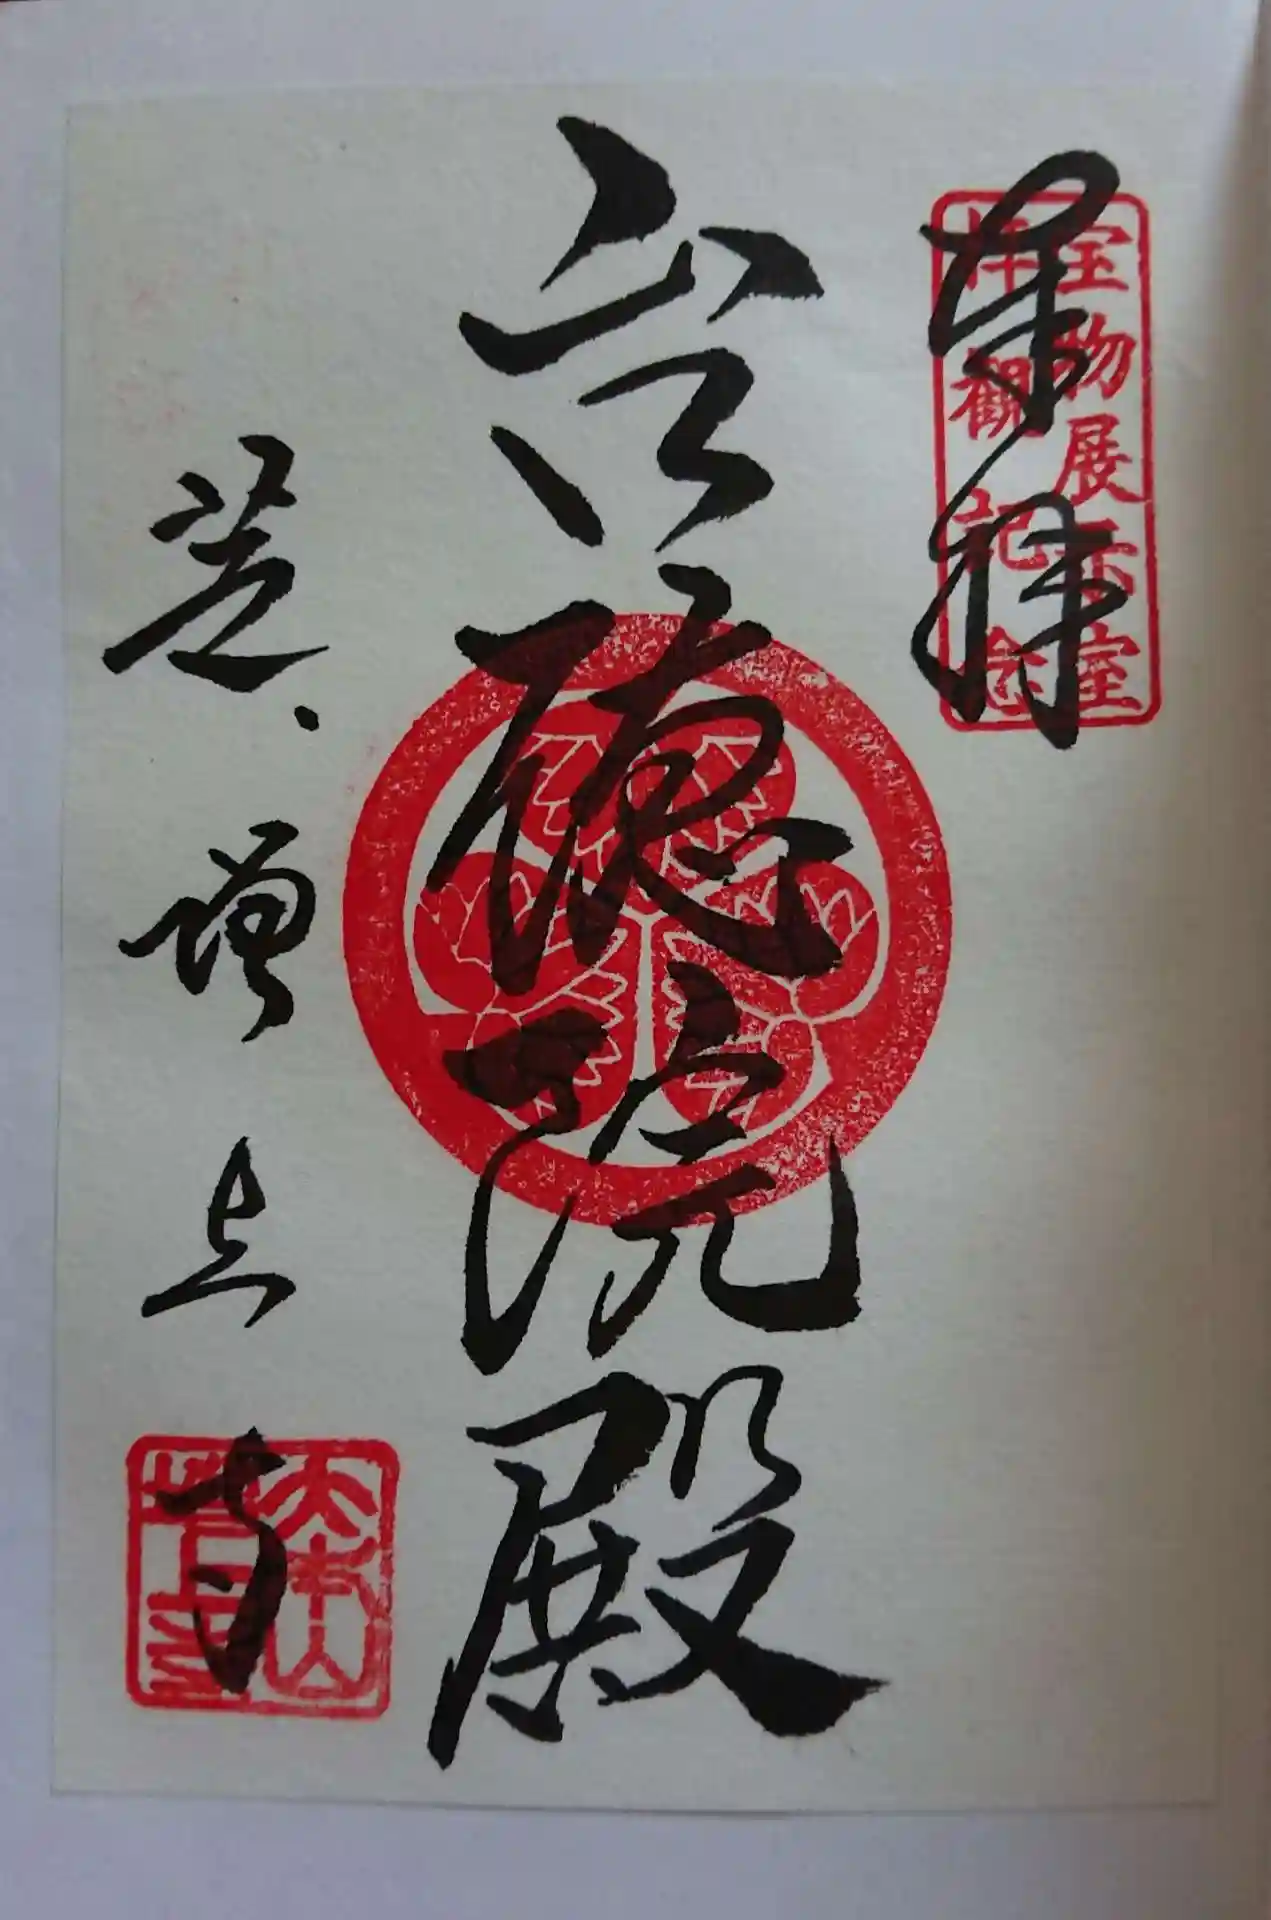 奉拝
宝物展示室
拝観記念
台徳院殿
芝、増上寺
大本山
増上寺